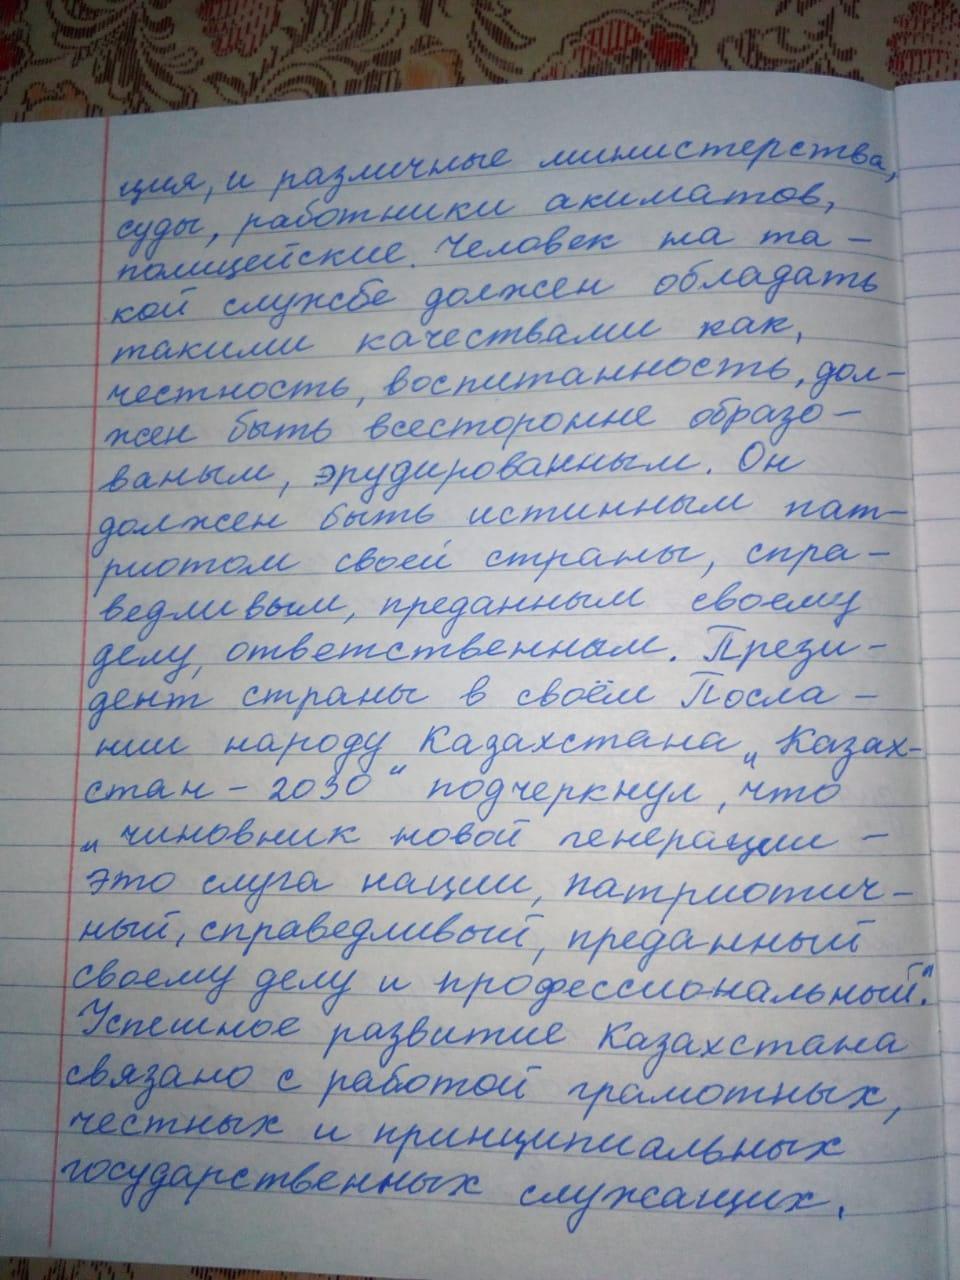 ция, и различные министерства,
суды, работники акиматов,
полицейские. Человек на та-
кой службе должен обладать
такими качествами как,
честность, воспитанность, дол-
жен быть всесторонне образо-
ваным, эрудированным. Он
должен быть истинным пат-
риотом своей страны, спра-
ведливым, преданным своему
делу, ответственным. Прези-
дент страны в своём Посла-
нии народу Казахстана „Казах-
стан - 2030“ подчеркнул, что
„чиновник новой генерации -
это слуга нации, патриотич-
ный, справедливый, преданный
своему делу и профессиональный“.
Успешное развитие Казахстана
связано с работой грамотных,
честных и принципиальных
государственных служащих.